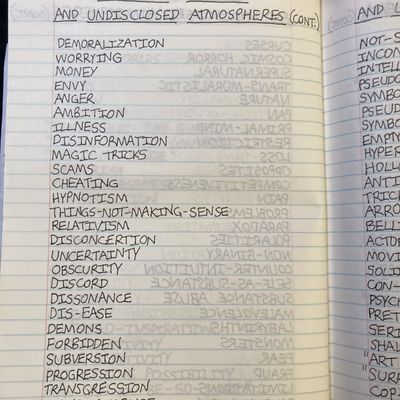 AND UNDISCLOSED ATMOSPHERES (CONT.)
DEMORALIZATION
WORRYING
MONEY
ENVY
ANGER
AMBITION
ILLNESS
DISINFORMATION
MAGIC TRICKS
SCAMS
CHEATING
HYPNOTISM
THINGS-NOT-MAKING-SENSE
RELATIVISM
DISCONCERTION
UNCERTAINTY
OBSCURITY
DISCORD
DISSONANCE
DIS-EASE
DEMONS
FORBIDDEN
SUBVERSION
PROGRESSION
TRANSGRESSION
AND U
NOT-S
INCON
INTELL
PSEUDO
SYMBO
PSEUD
SYMBO
EMPTY
HYPER
HOLL
ANTI
TRIC
ARRO
BELL
ACTO
MOVI
SOLI
CON-
PSYCH
PRET
SERI
SHAL
"ART
"SURR
COP